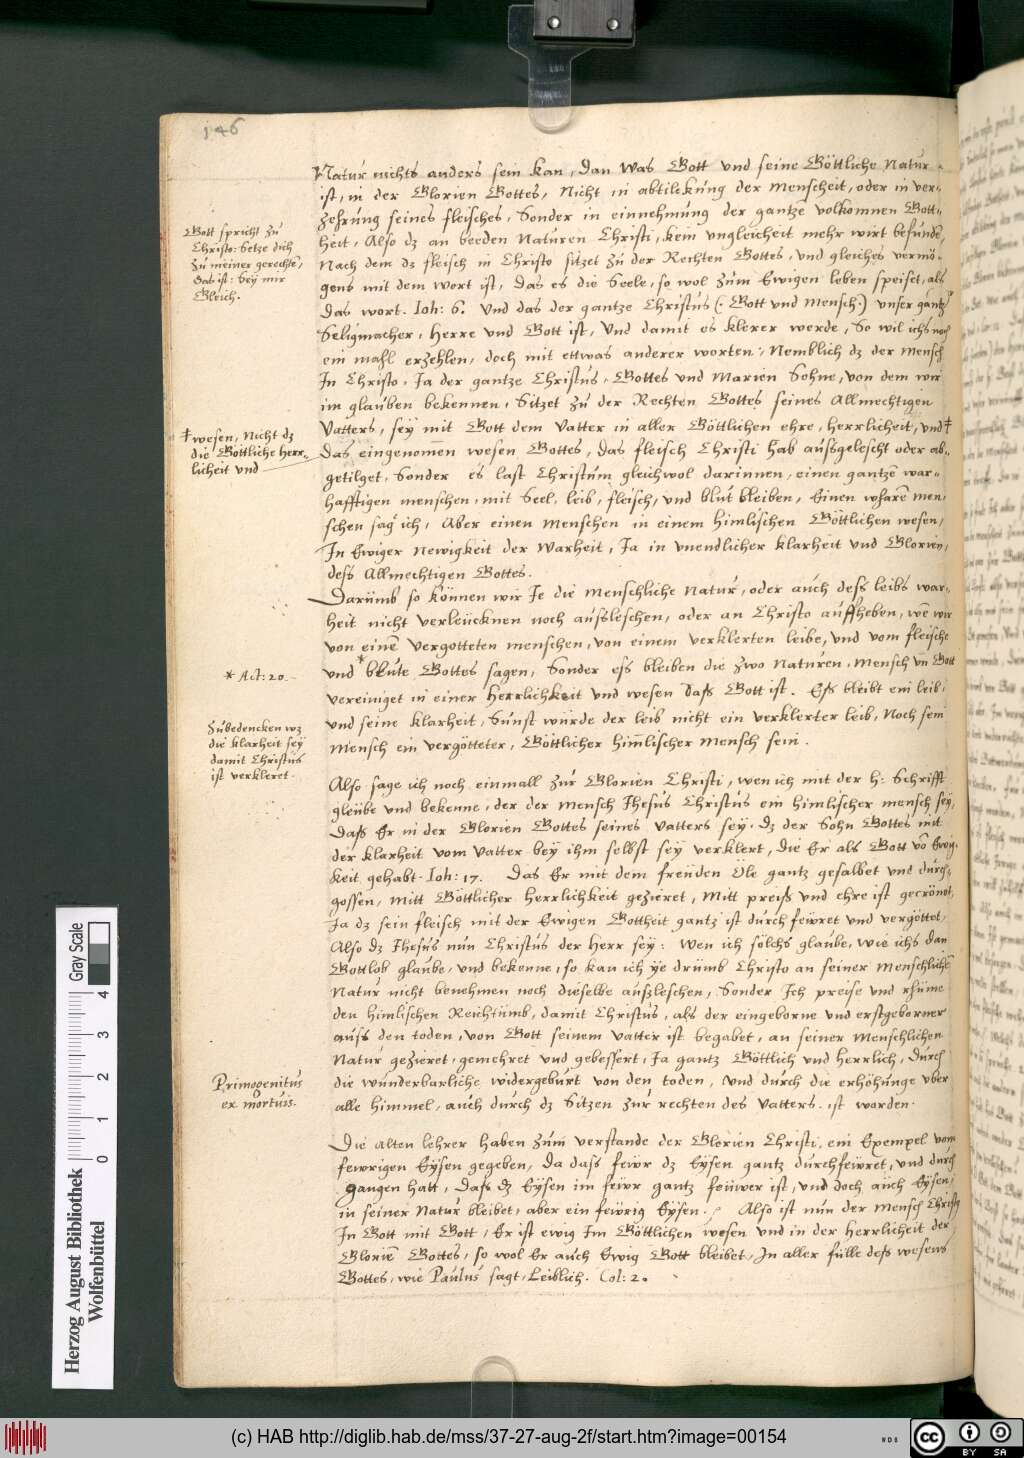 146
Natur nichts anders sein kan, dan was Gott vnd seine Göttliche Natur
ist, in der Glorien Gottes, Nicht in abtilckung der menscheit, oder in ver-
zehrung seines fleisches, Sonder in einnehmung der gantze volkomnen Gott-
heit, Also dz an beeden Naturen Christi, kein vngleicheit mehr wirt befunden,
Nach dem dz fleisch in Christo sitzet zu der Rechten Gottes, vnd gleiches vermö-
gens mit dem wort ist, das es die Seele, so wol zum Ewigen leben speiset, als
das wort. Ioh: 6. Vnd das der gantze Christus (: Gott vnd Mensch:) vnser gantz
Seligmacher, Herre vnd Gott ist, Vnd damit es klerer werde, So wil ichs noch
ein mahl erzehlen, doch mit ettwas anderer worten, Nemblich dz der mensch
In Christo, Ja der gantze Christus, Gottes vnd Marien Sohne, von dem wir
im glauben bekennen, Sitzet zu der Rechten Gottes seines Allmechtigen
Vatters, sey mit Gott dem Vatter in aller Göttlichen ehre, herrlicheit, vnd ‡
das eingenomen wesen Gottes, das fleisch Christi hab aussgelescht oder ab-
getilget, Sonder es last Christum gleichwol darinnen, einen gantzen war-
hafftigen menschen, mit Seel, leib, fleisch, vnd blut bleiben, Einen wharen men-
schen sag ich, Aber einen menschen in einem himlischen Göttlichen wesen,
In Ewiger Newigkeit der Warheit, Ja in vnendlicher klarheit vnd Glorien,
dess Allmechtigen Gottes.
Darumb so können wir Je die menschliche Natur, oder auch dess leibs war-
heit nicht verleücknen noch aussleschen, oder an Christo auffheben, wen wir
von einem vergotteten menschen, von einem verklerten leibe, vnd vom fleische
vnd * blute Gottes sagen, Sonder ess bleiben die zwo Naturen, Mensch vn Gott
vereiniget in einer Herrlichkeit vnd wesen dass Gott ist. Ess bleibt ein leib,
vnd seine klarheit, Sunst würde der leib nicht ein verklerter leib, Noch sein
Mensch ein vergötteter, Göttlicher himlischer mensch sein.
Also sage ich noch einmall zur Glorien Christi, wen ich mit der h: Schrifft
gleübe vnd bekenne, der der mensch Jhesus Christus ein himlischer mensch sey,
dass Er in der Glorien Gottes seines Vatters sey, dz der Sohn Gottes mit
der klarheit vom Vatter bey ihm selbst sey verklert, die Er als Gott vo Ewig-
keit gehabt. Ioh: 17. Das Er mit dem freüden Öle gantz gesalbet vnd durch-
gossen, mitt Göttlicher herrlichkeit gezieret, Mitt preiss vnd ehre ist gecrönet,
Ja dz sein fleisch mit der Ewigen Gottheit gantz ist durch fewret vnd vergöttet,
Also dz Jhesus nun Christus der Herr sey: Wen ich sölchs glaube, wie ichs dan
Gottlob glaube, vnd bekenne, so kan ich ye drumb Christo an seiner menschlichen
Natur nicht benehmen noch dieselbe aussleschen, Sonder Ich preise vnd rhüme
den himlischen Reichtumb, damit Christus, als der eingeborne vnd erstgeborner
auss den toden, von Gott seinem Vatter ist begabet, an seiner Menschlichen
Natur gezieret, gemehret vnd gebessert, Ja gantz Göttlich vnd herrlich, durch
die wunderbarliche widergeburt von den toden, vnd durch die erhöhunge vber
alle himmel, auch durch dz Sitzen zur rechten des Vatters. ist worden.
Die alten lehrer haben zum verstande der Glorien Christi, ein Exempel vom
fewrigen Eysen gegeben, da dass fewr dz Eysen gantz durchfewret, vnd durch
gangen hatt, dass dz Eysen im fewr gantz feüwer ist, vnd doch auch Eysen,
in seiner Natur bleibet, aber ein fewrig Eysen. Also ist nun der mensch Christus
In Gott mit Gott, Er ist ewig Im Göttlichen wesen vnd in der herrlicheit der
Glorien Gottes, so wol Er auch Ewig Gott bleibet, In aller fülle dess wesens
Gottes, wie Paulus sagt, Leiblich. Col: 2.
Gott spricht zu
Christo: Setze dich
zu meiner gerechten,
das ist: Sey mir
Gleich.
‡ wesen, Nicht dz
die Göttliche Herr-
licheit vnd
* Act: 20.
Zubedencken wz
die klarheit sey
damit Christus
ist verkleret.
Primogenitus
ex mortuis.
Gray Scale
0 1 2 3 4
Herzog August Bibliothek
Wolfenbüttel
(c) HAB http://diglib.hab.de/mss/37-27-aug-2f/start.htm?image=00154
WDB
cc BY SA